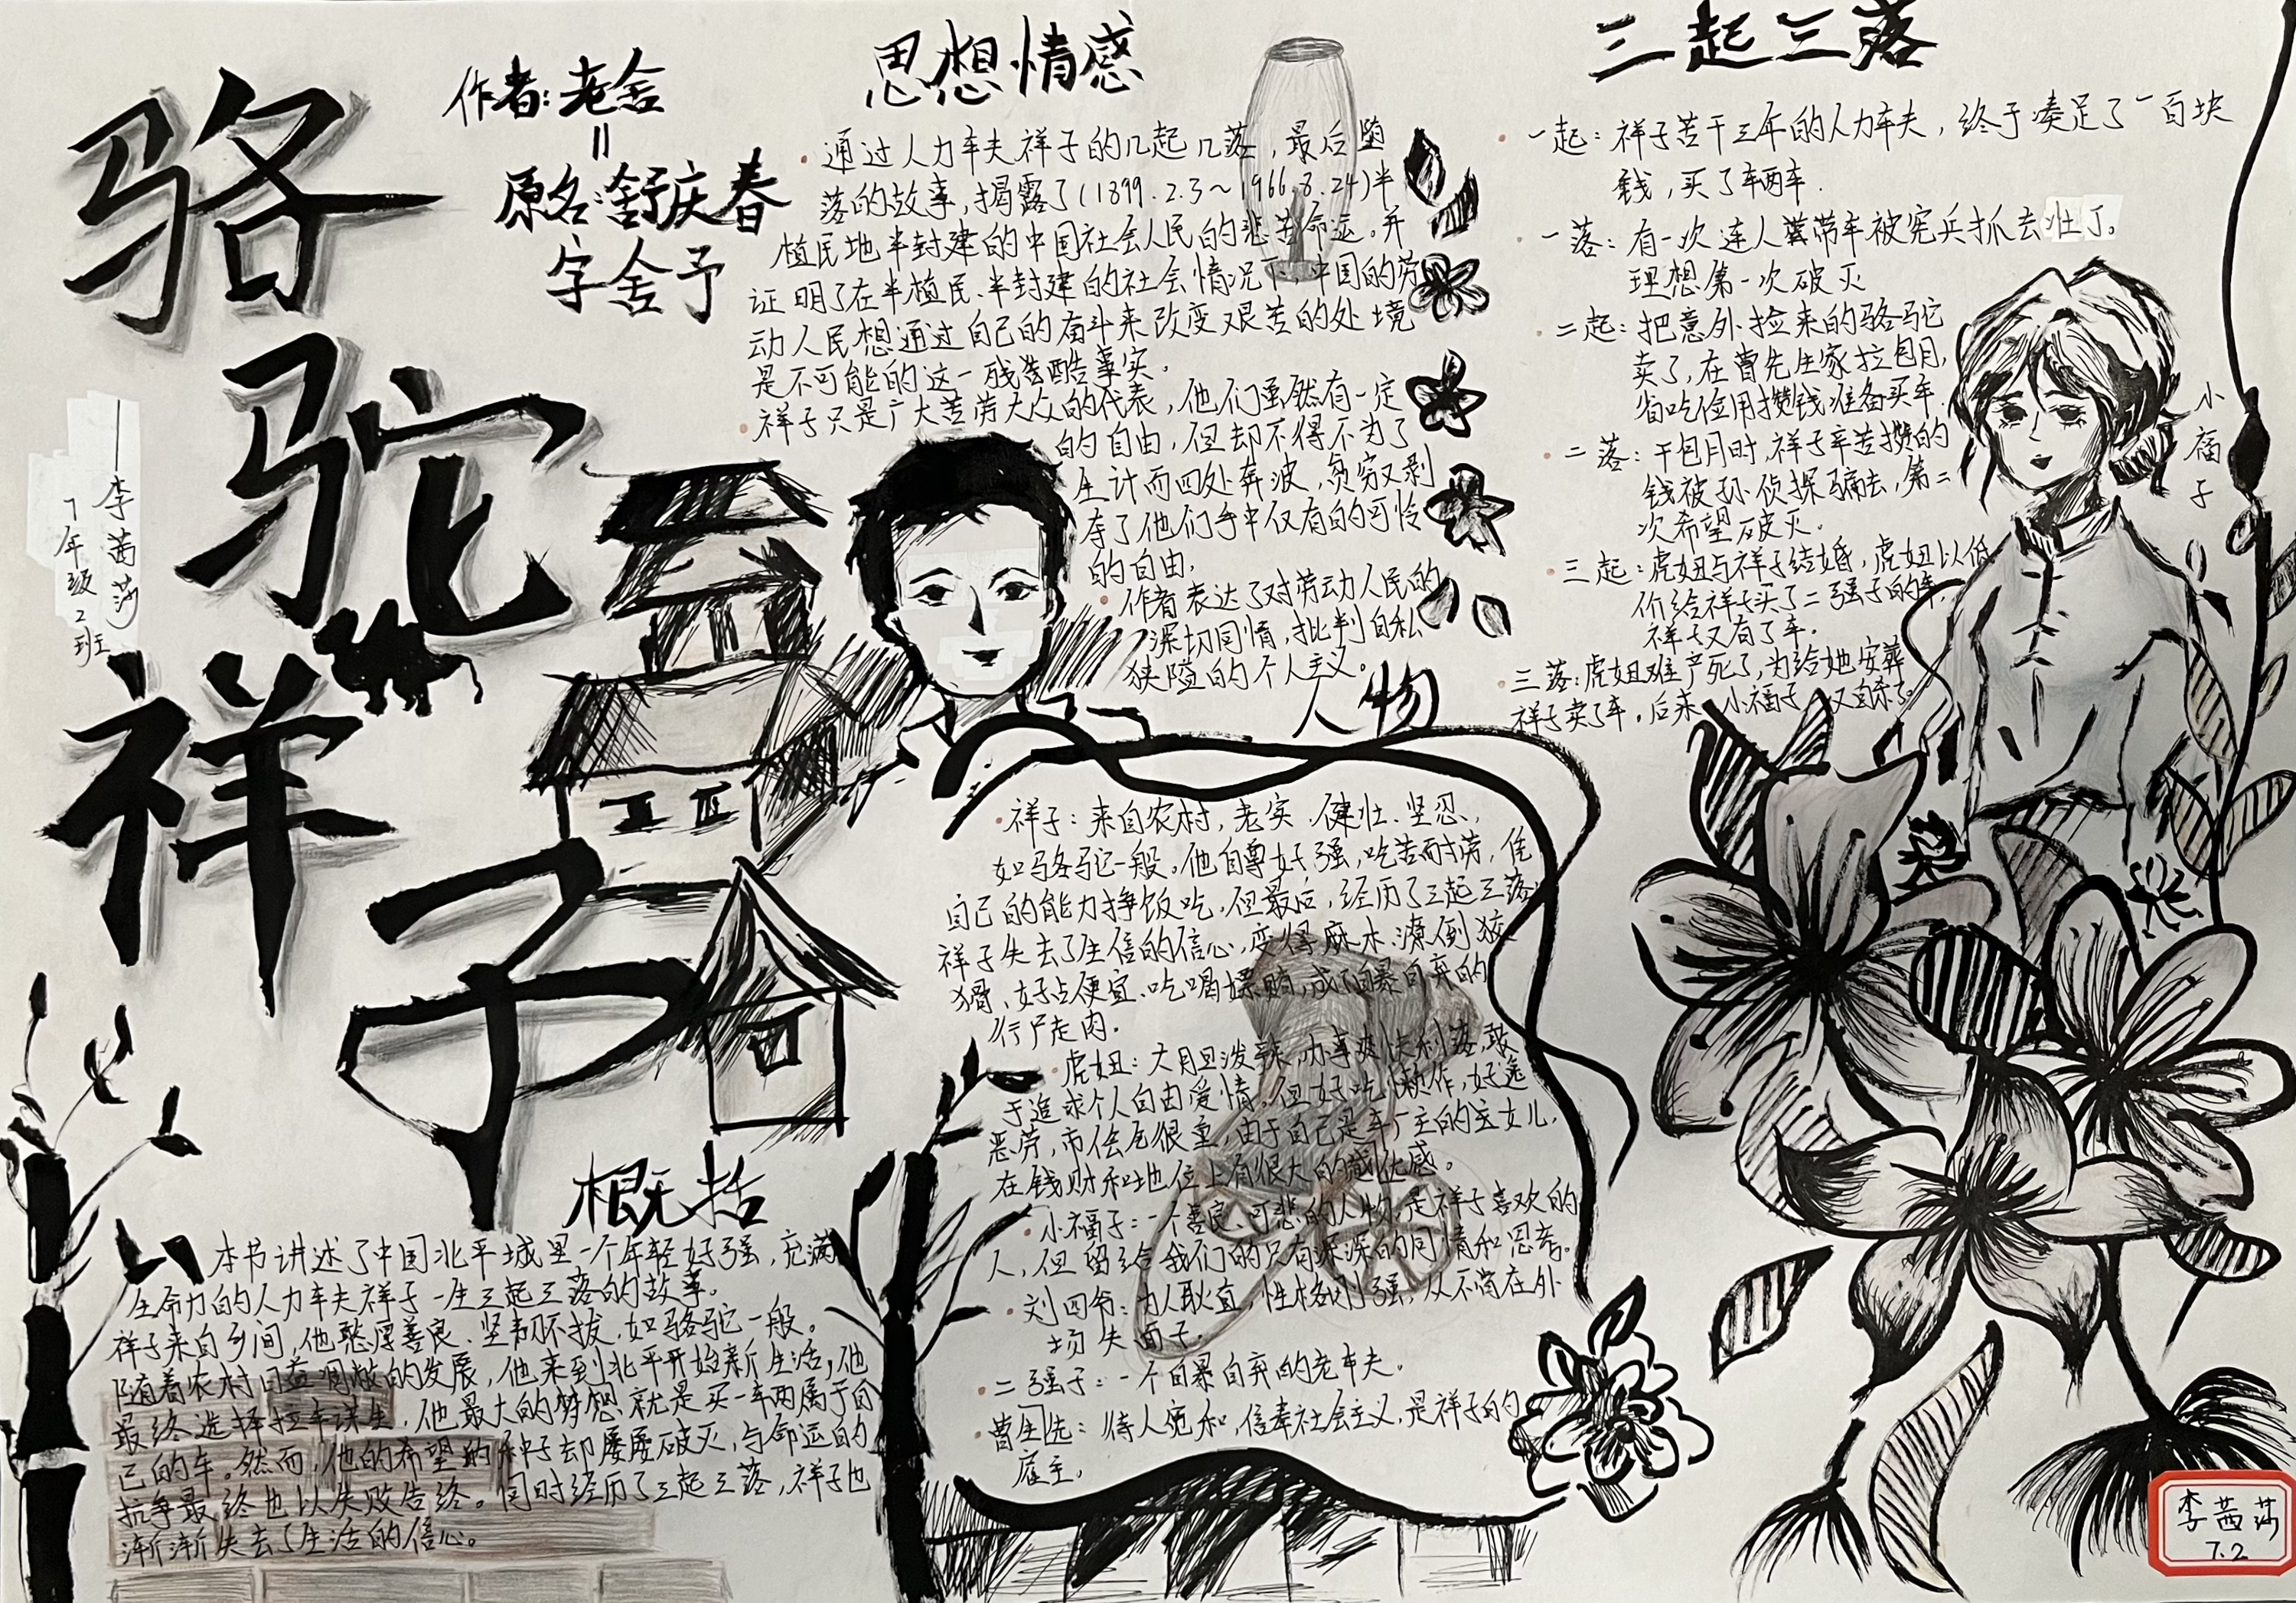 骆
驼
祥
子
作者:老舍
=
原名:舒庆春
字舍予
——李茜莎
7年级2班
思想情感
·通过人力车夫祥子的几起几落,最后堕
落的故事,揭露了(1899.2.3~1966.8.24)半
植民地半封建的中国社会人民的悲苦命运。并
证明了在半植民、半封建的社会情况下,中国的劳
动人民想通过自己的奋斗来改变艰苦的处境
是不可能的这一残酷事实。
·祥子只是广大苦劳大众的代表,他们虽然有一定
的自由,但却不得不为了
生计而四处奔波,贫穷又剥
夺了他们手中仅有的可怜
的自由,
·作者表达了对劳动人民的
深切同情,批判自私
狭隘的个人主义。
三起三落
·一起:祥子苦干三年的人力车夫,终于凑足了一百块
钱,买了车两车.
·一落:有一次连人带车被宪兵抓去壮丁。
理想第一次破灭
·二起:把意外捡来的骆驼
卖了,在曹先生家拉包月,
省吃俭用攒钱准备买车.
·二落:干包月时,祥子辛苦攒的
钱被孙侦探骗去,第二
次希望破灭。
·三起:虎妞与祥子结婚,虎妞以低
价给祥子买了二强子的车,
祥子又有了车.
·三落:虎妞难产死了,为给她安葬
祥子卖了车。后来,小福子又自杀了。
小福子
人物
·祥子:来自农村,老实、健壮、坚忍,
如骆驼一般。他自尊好强,吃苦耐劳,凭
自己的能力挣饭吃,但最后,经历了三起三落
祥子失去了生信的信心,变得麻木、潦倒狡
猾、好占便宜、吃喝嫖赌,成了自暴自弃的
行尸走肉.
·虎妞:大胆泼辣,办事爽快利落,敢
于追求个人自由爱情。但好吃懒作,好逸
恶劳,市侩气很重,由于自己是车厂主的女儿,
在钱财和地位上有很大的优感。
·小福子:一个善良、可悲的人物,是祥子喜欢的
人,但留给我们的只有深深的同情和思考。
·刘四爷:为人耿直,性格刚强,从不肯在外
场失面子.
·二强子:一个自暴自弃的老车夫.
·曹先生:待人宽和,信奉社会主义,是祥子的
雇主,
概括
本书讲述了中国北平城里一个年轻好强,充满
生命力的人力车夫祥子一生三起三落的故事。
祥子来自乡间,他憨厚善良、坚韧不拔,如骆驼一般。
随着农村日益凋敝的发展,他来到北平开始新生活,他
最终选择拉车谋生,他最大的梦想就是买一车两属于自
己的车。然而,他的希望的种子却屡屡破灭,与命运的
抗争最终也以失败告终。同时经历了三起三落,祥子也
渐渐失去了生活的信心。
李茜莎
7.2